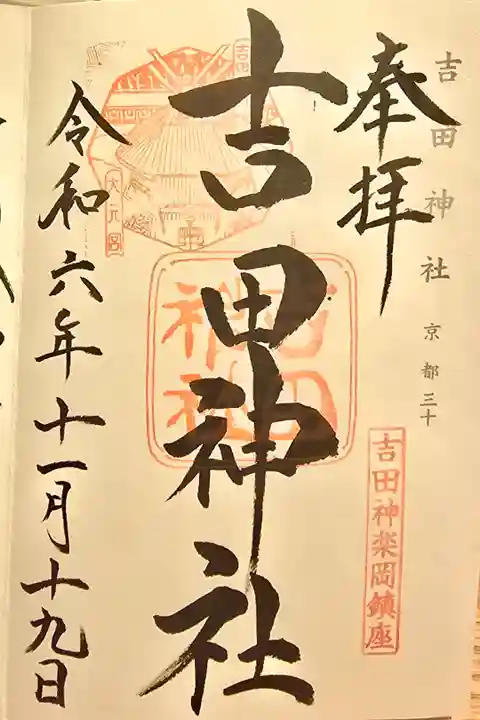 吉田神社 京都三十
奉拝
吉田神楽岡鎮座
吉田神社
吉田
大元宮
吉田
神社
令和六年十一月十九日